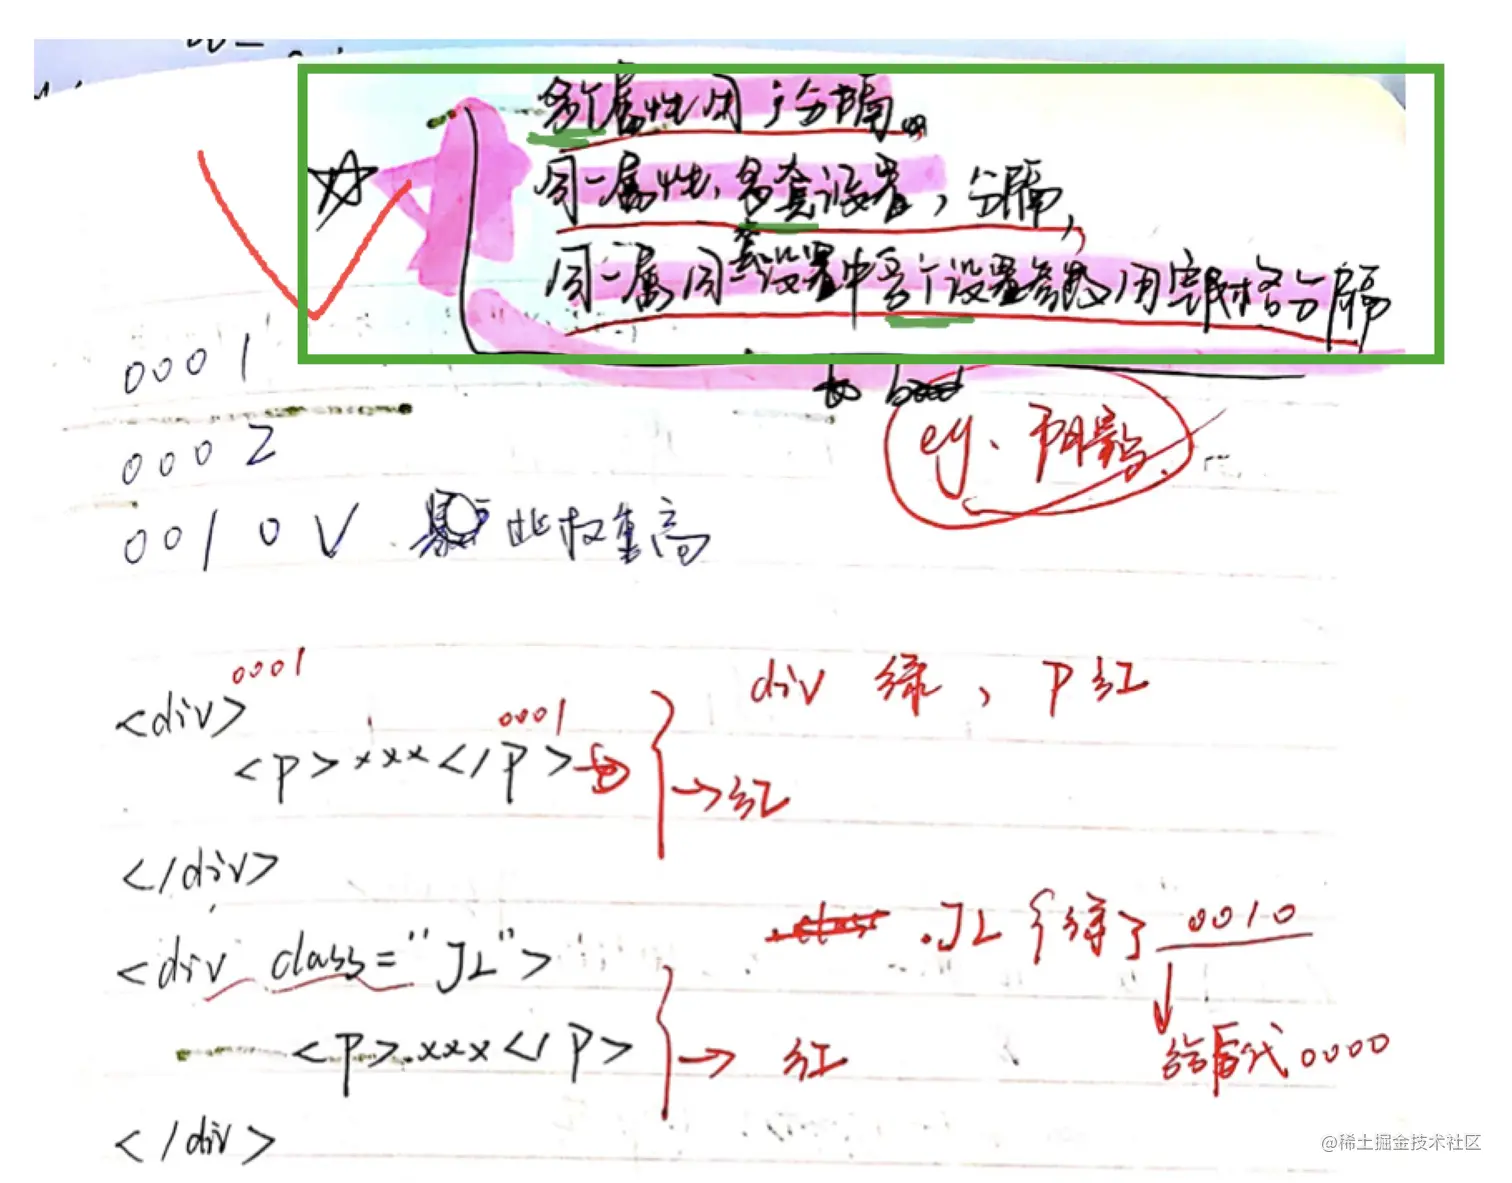 多个属性用;分隔。
同一属性,多套设置,分隔,
同一属同套设置中多个设置参数用空格分隔
eg. 阴影
0001
0002
0010 V 此权重高
0001
<div>
div 绿, P红
0001
<P>xxx</P>
→红
</div>
.JL {绿} 0010
<div class="JL">
<P>xxx</P>
→ 红
给后代0000
</div>
@稀土掘金技术社区